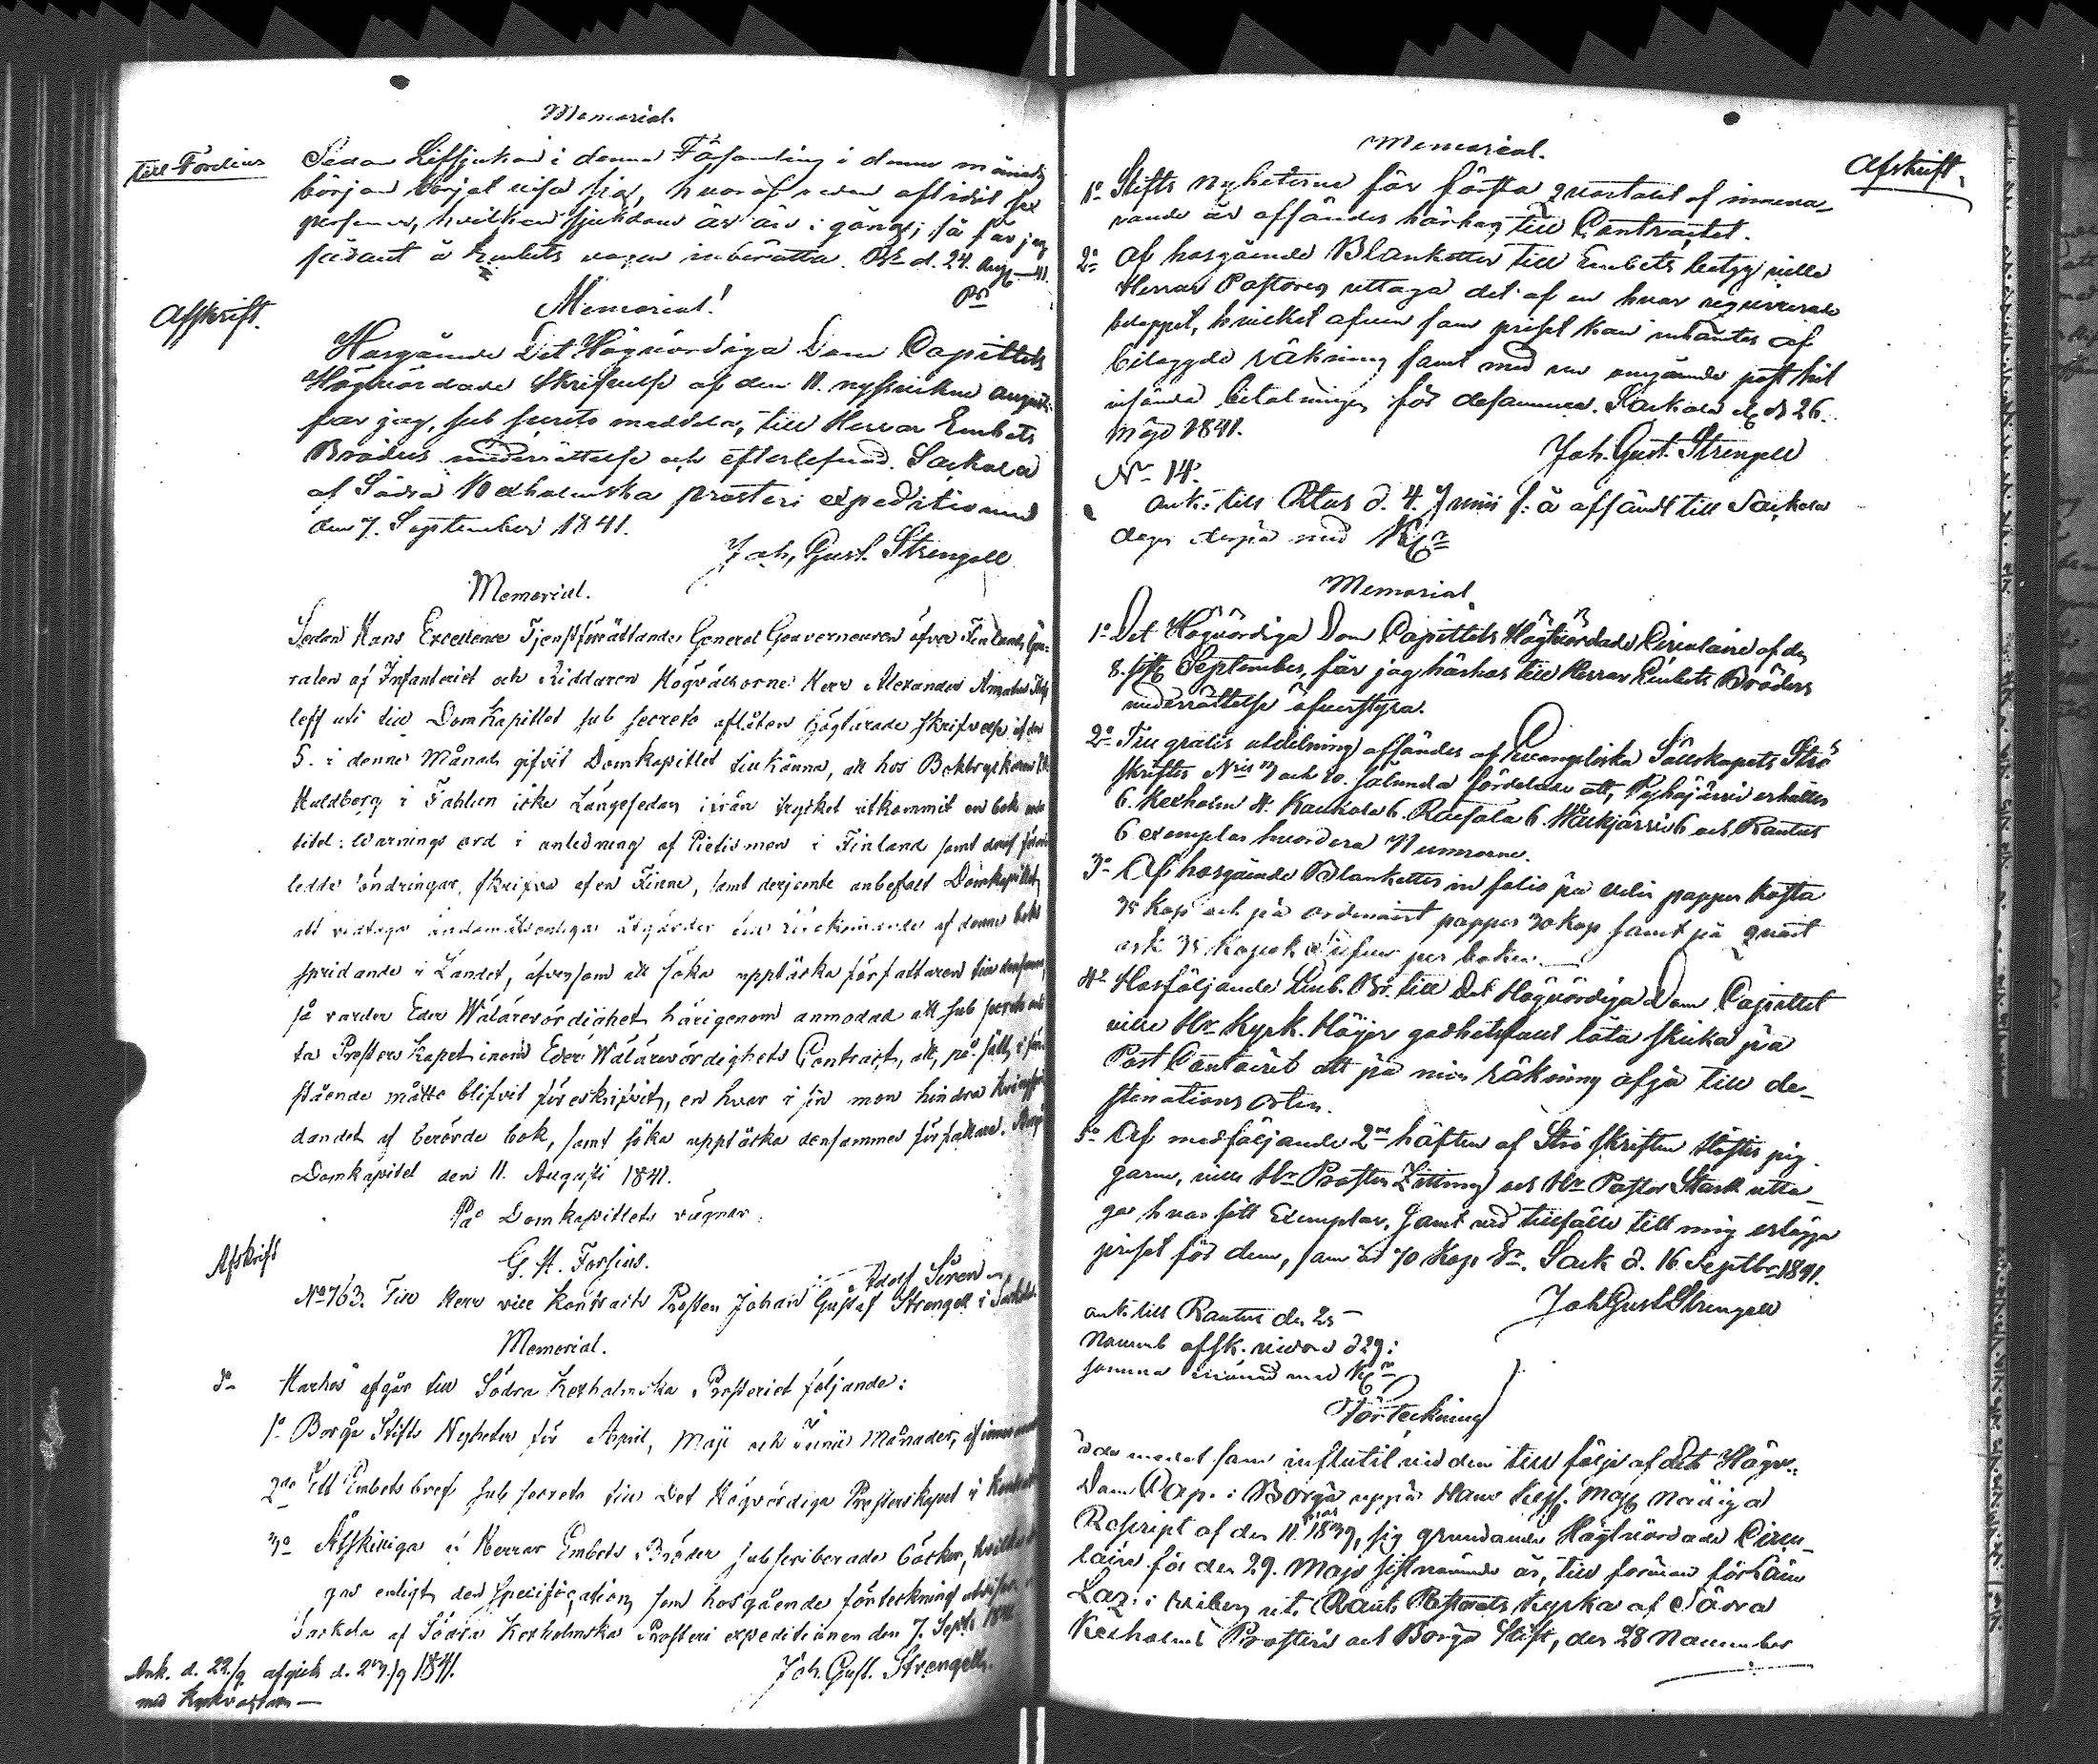 Memorial.
till Fordius
Sedan Lifsjukan i denna Församling i denna månads
början börjat visa sig, hvaraf redan aflidit sex
personer, hvilken sjukdom är än i gång; så får jag
sådant å Embets vagnar inberätta. d. 24. Aug. 41.
Memorial!
Afskrift.
Hosgående Det Högvördiga Dom Capitlets
Högtvördade skrifvelse af den 11. nyssvikne Augusti
får jag, sub secreto meddela, till Herrar Embets
Bröders underrättelse och efterlefnad. Sackola
af Södra Kexholmska prosteri expeditionen
den 7. September 1841.
Joh. Gust. Strengell
Memorial.
Sedan Hans Excellence Tjenstförrättande General Gouverneuren öfver Finland, Gene-
ralen af Infanteriet och Riddaren Högvälborne Herr Alexander Amatus Thes
leff uti till DomKapitlet sub secreto aflåten högtärade skrifvelse af den
5. i denne Månad gifvit Domkapitlet tillkänna, att hos Boktryckaren
Huldberg i Fahlun icke längesedan ifrån trycket utkommit en bok
titel: Warnings ord i anledning af Pietismen i Finland samt deraf
ledde söndringar, skrifven af en Finne, samt derjemte anbefalt Domkapitlet
att vidtaga ändamålsenliga åtgärder till förekommande af denne boks
spridande i Landet, äfvensom att söka upptäcka författaren till densamme,
så varder Eder Wälärevördighet härigenom anmodad att sub secreto
ta Presterskapet inom Eder Wälärevördighets Contract, att, på sätt, i för
stående måtto blifvit föreskrifvit, en hvar i sin mon hindra kringspri
dandet af berörde bok, samt söka upptäcka densammes författare. Borgå
Domkapitel den 11. Augusti 1841.
På Domkapitlets vägnar.
G. H. Forsius.
Adolf Sirén
Afskrift
No 763. Till Herr vice Kontracts Prosten Johan Gustaf Strengell i Sackola
Memorial.
Härhos afgår till Södra Kexholmska Prosteriet följande:
1o Borgå Stifts Nyheter för April, Maji och Junii Månader, af
2do Ett Embets bref sub secreto till Det Högvördiga Presterskapet i
3o Åtskilliga af Herrar Embets Bröder subscriberade böcker,
gas enligt den specification, som hosgående förteckning utvisar
Sackola af Södra Kexholmska Prosteri expeditionen den 7. Sept. 1841
Joh. Gust. Strengell.
Ank. d. 22/9 afgick d. 23/9 1841.
med
Memorial.
Afskrift.
1o Stifts Nyheterne för första quartalet af innева-
rande år afsändes härhos till Contractet.
2o Af hosgående Blanketter till Embets betyg ville
Herrar Pastorer uttaga det af en hvar requirerade
beloppet, hvilket äfven som priset kan inhämtas af
bilagde räkning samt med omgående post hit
insända betalningen för desamma. Sackola d. 26.
Maji 1841.
Joh. Gust. Strengell
No 14.
ank: till Rtus d. 4. Junii s: å afsändt till Sackola
dagen derpå med
Memorial
1o Det Högvördiga Dom Capitlets Högtvördade Circulaire af den
8. September, får jag härhos till Herrar Embets Bröders
underrättelse öfverstyra.
2o Till gratis utdelning afsändes af Evangeliska Sällskapets Strö
skrifter och 20. sålunda fördelade att, Pyhäjärvi erhåller
6. Kexholm 4. Kaukola 6. Räisälä 6. 6 och Rautus
6 exemplar hvardera Numrorne.
3o Af hosgående Blanketter in folio på velin papper kosta
35 kop och på ordinairt papper 30 kop samt på quart
ark 35 kopek silfver per boken.
4o Hosföljande Emb. Br. till Det Högvördiga Dom Capitlet
ville Hr Kyrk. Höijer godhetsfullt låta skicka på
Post Contoiret att på min räkning afgå till de-
stinations orten.
5o Af medföljande 2ne häften af Strö skriften
garne, ville Hr Prosten Zitting och Hr Pastor Stark utta-
ga hvar sitt Exemplar, samt vid tillfälle till mig erlägga
priset för dem, som är 70 Kop Sr. Sack d. 16 Septbr 1841.
Joh Gust Strengell
ank: till Rautus den 25
Novemb afsk. d 29:
samma månad med
Förteckning
öfver medel som influtit vid den till följe af det Högv.
Dom Cap. i Borgå uppå Hans Kejs. Maj Nådiga
Rescript af den 11. Mars 1839, sig grundande Högtvördade Circu-
lair för den 29. Maji sistnämnde år, till förmån för
i Wiborg uti Raut. Pastorats kyrka af Södra
Kexholms Prosteri och Borgå Stift, den 28 November